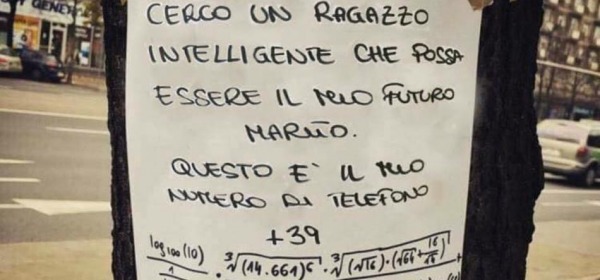 CERCO UN RAGAZZO
INTELLIGENTE CHE POSSA
ESSERE IL MIO FUTURO
MARITO.
QUESTO E' IL MIO
NUMERO DI TELEFONO
+39
log₁₀₀(10) · ∛(14.661)⁶ · ∛(√16)·(√64+16